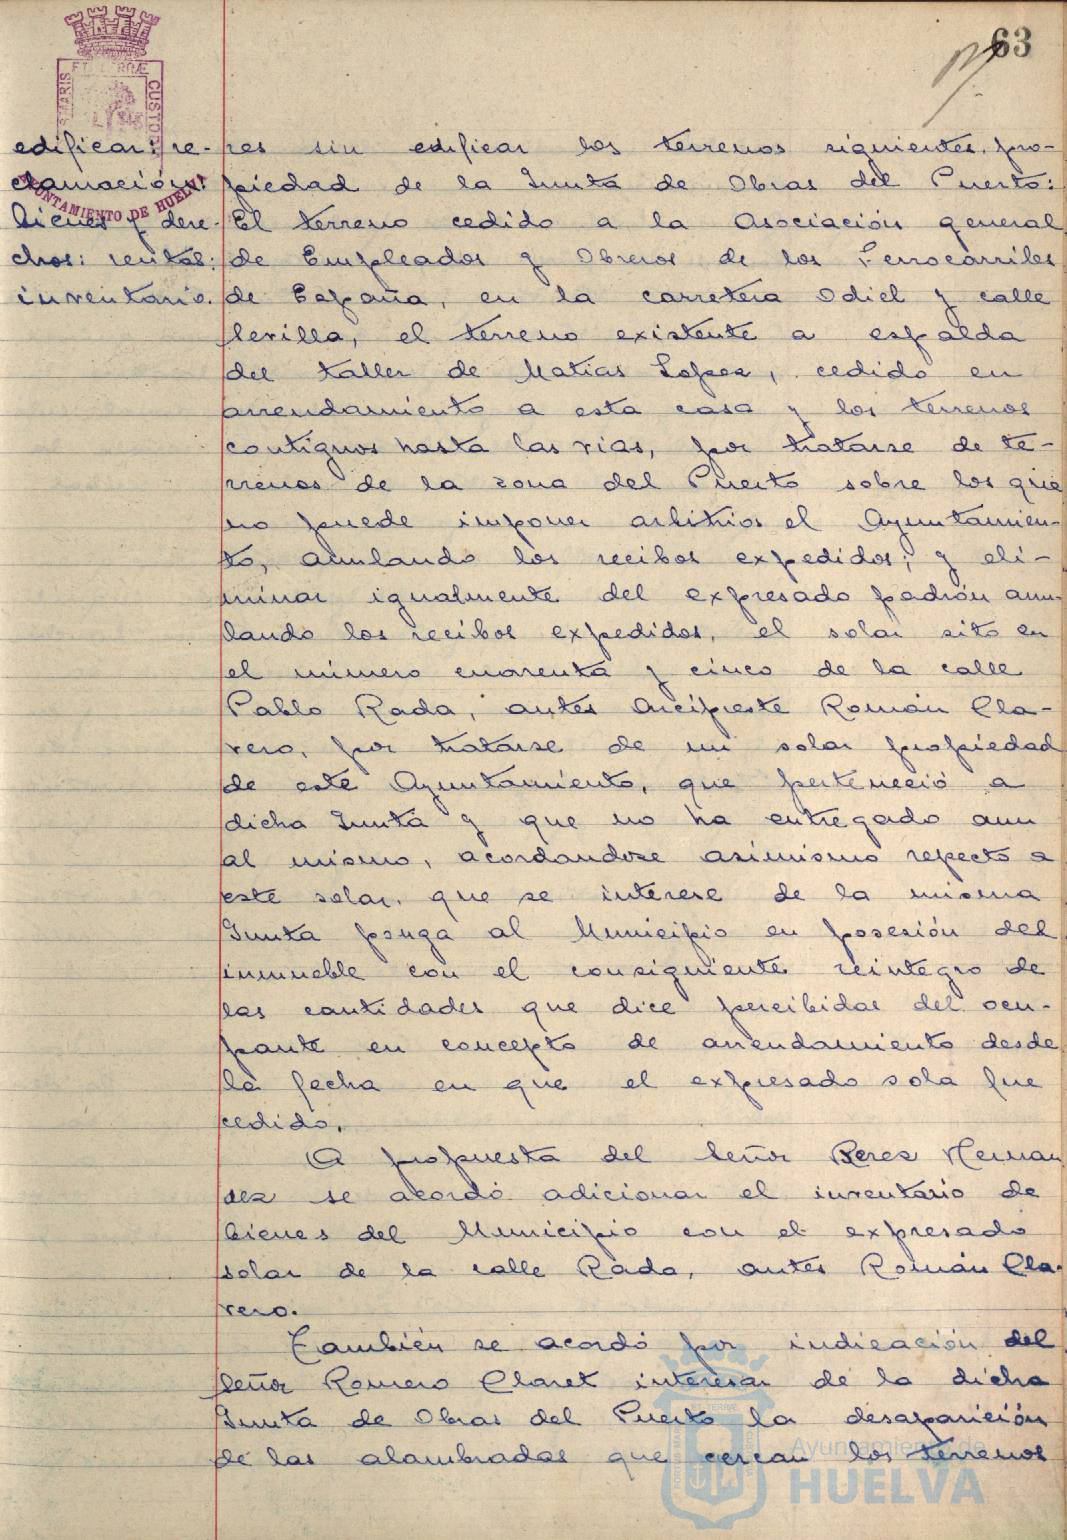 63
edificar: re-
clamación:
bienes y dere-
chos: rentas:
inventario.
res sin edificar los terrenos siguientes, pro-
piedad de la Junta de Obras del Puerto:
El terreno cedido a la Asociación general
de Empleados y Obreros de los Ferrocarriles
de España, en la carretera Odiel y calle
Sevilla, el terreno existente a espalda
del taller de Matias Lopez, cedido en
arrendamiento a esta casa y los terrenos
contiguos hasta las vias, por tratarse de te-
rrenos de la zona del Puerto sobre los que
no puede imponer arbitrios el Ayuntamien-
to, anulando los recibos expedidos; y eli-
minar igualmente del expresado padrón anu-
lando los recibos expedidos, el solar sito en
el número cuarenta y cinco de la calle
Pablo Rada, antes Arcipreste Román Cla-
vero, por tratarse de un solar propiedad
de este Ayuntamiento, que perteneció a
dicha Junta y que no ha entregado aun
al mismo, acordandose asimismo repecto a
este solar, que se interese de la misma
Junta ponga al Municipio en posesión del
inmueble con el consiguiente reintegro de
las cantidades que dice percibidas del ocu-
pante en concepto de arrendamiento desde
la fecha en que el expresado sola fue
cedido.
A propuesta del Señor Perez Hernan
dez se acordó adicionar el inventario de
bienes del Municipio con el expresado
solar de la calle Rada, antes Román Cla-
vero.
También se acordó por indicación del
Señor Romero Claret interesar de la dicha
Junta de Obras del Puerto la desaparición
de las alambradas que cercan los terrenos
MARIS ET TERRÆ CUSTOD
AYUNTAMIENTO DE HUELVA
Ayuntamiento de
HUELVA